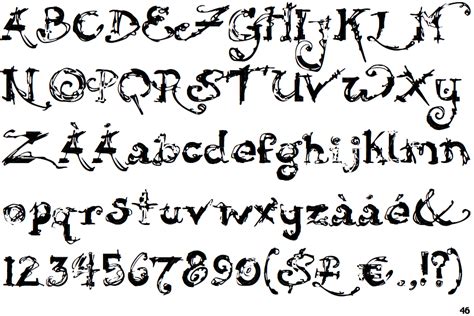 ABCDEFGHIJKLM
NOPQRSTUVWXY
ZÀÁabcdefghijklmn
opqrstuvwxyzàáé&
1234567890($£€.,!?)
46